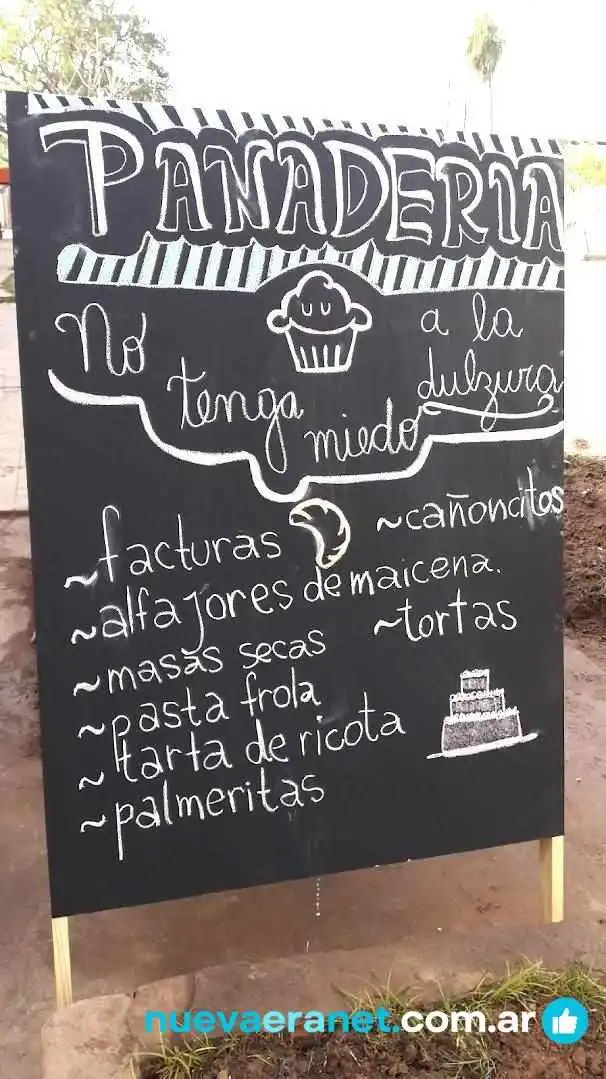 PANADERIA
No tenga miedo a la dulzura
~facturas ~cañoncitos
~alfajores de maicena.
~masas secas ~tortas
~pasta frola
~tarta de ricota
~palmeritas
nuevaeranet.com.ar